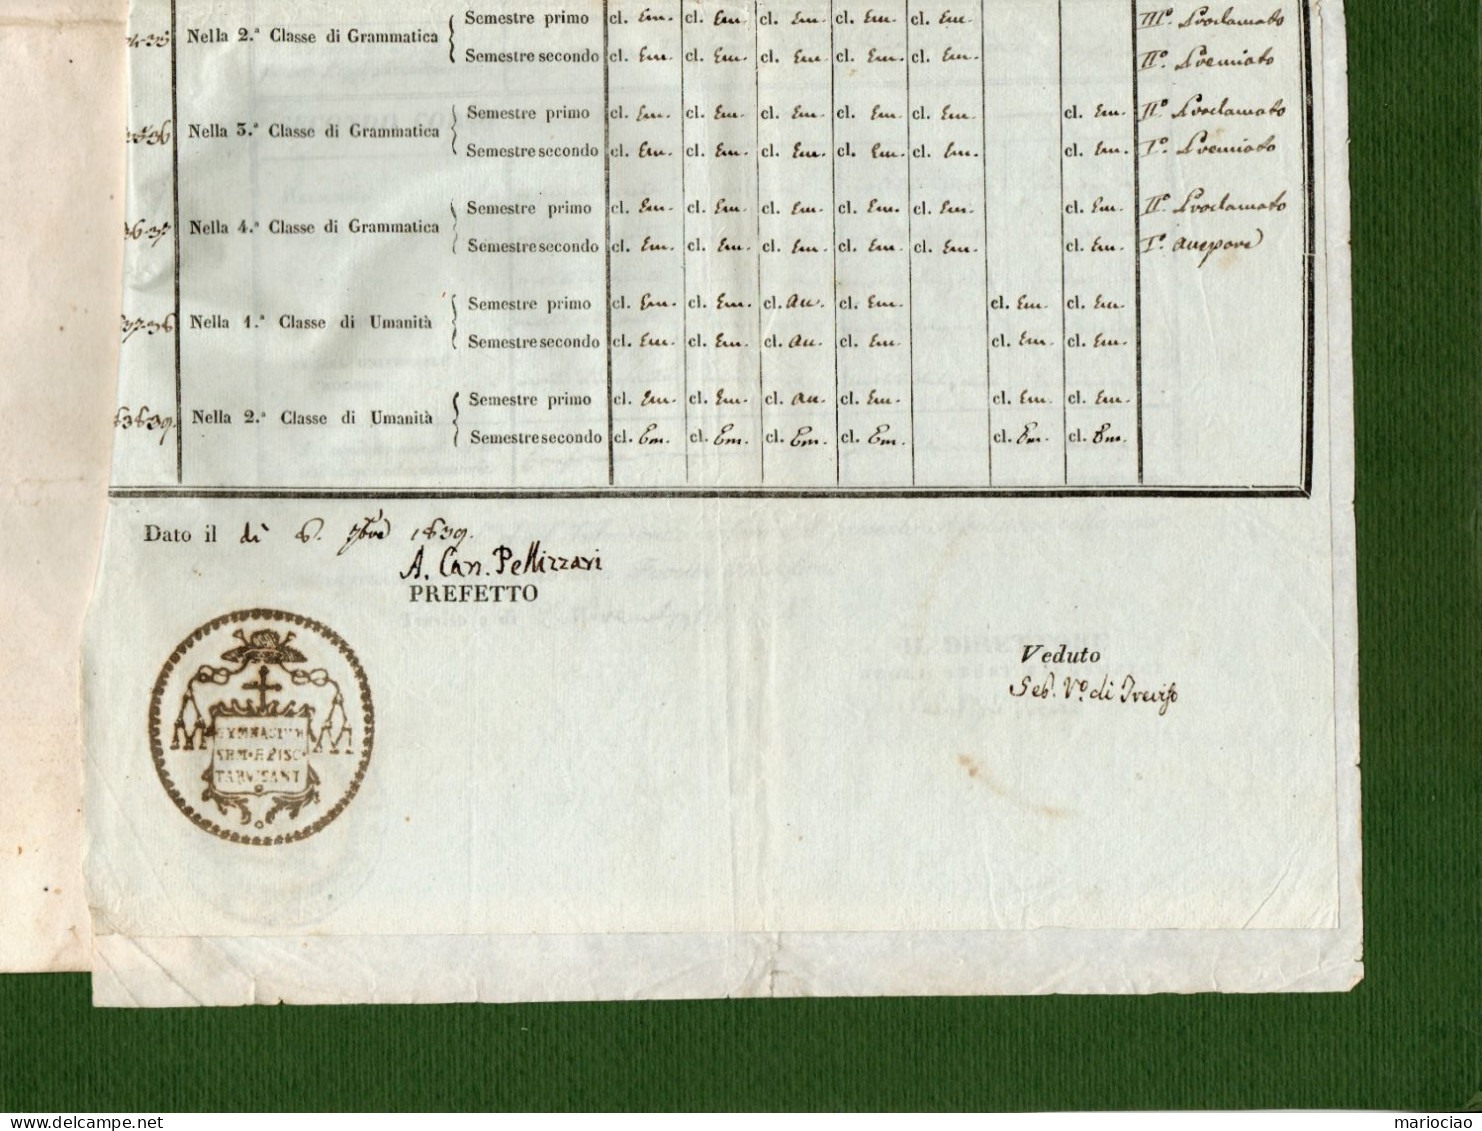 34-35 Nella 2.ª Classe di Grammatica { Semestre primo cl. Em. cl. Em. cl. Em. cl. Em. cl. Em. IIIº. Proclamato
Semestre secondo cl. Em. cl. Em. cl. Em. cl. Em. cl. Em. IIº. Premiato
Nella 3.ª Classe di Grammatica { Semestre primo cl. Em. cl. Em. cl. Em. cl. Em. cl. Em. cl. Em. IIº. Proclamato
Semestre secondo cl. Em. cl. Em. cl. Em. cl. Em. cl. Em. cl. Em. Iº. Premiato
36-37 Nella 4.ª Classe di Grammatica { Semestre primo cl. Em. cl. Em. cl. Em. cl. Em. cl. Em. cl. Em. IIº. Proclamato
Semestre secondo cl. Em. cl. Em. cl. Em. cl. Em. cl. Em. cl. Em. Iº.
Nella 1.ª Classe di Umanità { Semestre primo cl. Em. cl. Em. cl. Au. cl. Em. cl. Em. cl. Em.
Semestre secondo cl. Em. cl. Em. cl. Au. cl. Em. cl. Em. cl. Em.
Nella 2.ª Classe di Umanità { Semestre primo cl. Em. cl. Em. cl. Au. cl. Em. cl. Em. cl. Em.
Semestre secondo cl. Em. cl. Em. cl. Em. cl. Em. cl. Em. cl. Em.
Dato il dì 6. 7bre 1839.
A. Can. Pellizzari
PREFETTO
Veduto
Seb. Vº. di Treviso
GYMNASIUM
SEM·EPISC·
TARVISANI
mariociao